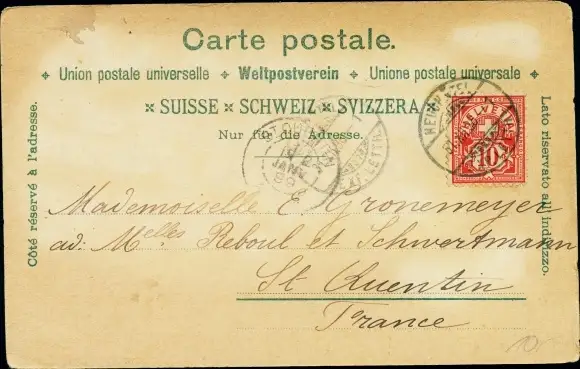 Carte postale.
✦ Union postale universelle ✦ Weltpostverein ✦ Unione postale universale ✦
× SUISSE × SCHWEIZ × SVIZZERA ×
Nur für die Adresse.
Côté réservé à l'adresse.
Lato riservato all'indirizzo.
HELVETIA
10
JANV
Mademoiselle E. Gronemeyer
ad. Melles Reboul et Schwertmann
St Quentin
France
10